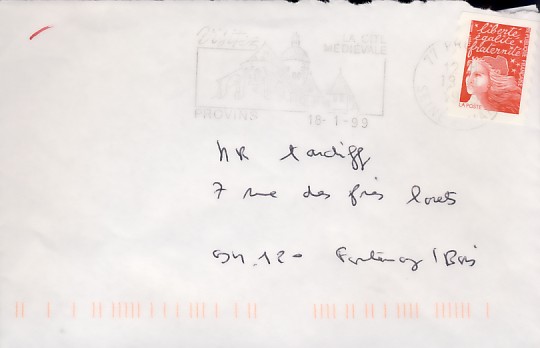 LA CITE
MEDIEVALE
PROVINS
18-1-99
liberté
égalité
fraternité
LA POSTE
MR Tardiff
7 rue des
94.120 Fontenay/Bois